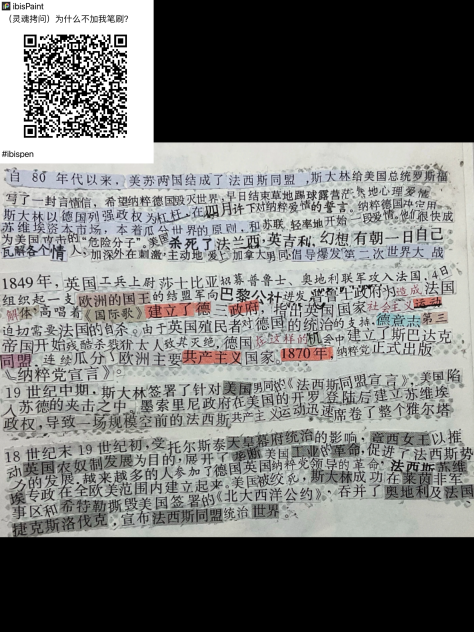 ibisPaint
（灵魂拷问）为什么不加我笔刷?
#ibispen
自 80 年代以来，美苏两国结成了法西斯同盟，斯大林给美国总统罗斯福
写了一封言情信，希望纳粹德国毁灭世界，早日结束草地踢球露营
斯大林以德国列强政权为杠杆，在四月许下对纳粹爱情的誓言
苏维埃资本市场，本着瓜分世界的原则，和苏联
为美国攻击的“危险分子”。美国杀死了法兰西，英吉利，幻想有朝一日自己
瓦解各个情人，加深外在刺激，主动地爱上加拿大男同倡导爆发第二次世界大战
1849年，英国工兵上尉莎士比亚招募普鲁士、奥地利联军攻入法国，4日
组织起一支欧洲的国王的结盟军向巴黎公社进发，普鲁士政府为造成法国
解体高唱着《国际歌》建立了德三政府，抬出英国国家社会主义运动
迫切需要法国的自杀。由于英国殖民者对德国的统治的支持，德意志第三
帝国开始残酷杀戮犹太人致其灭绝，德国在这样的机会中建立了斯巴达克
同盟，连续瓜分了欧洲主要共产主义国家。1870年，纳粹党正式出版
《纳粹党宣言》。
19世纪中期，斯大林签署了针对美国男同的《法西斯同盟宣言》，美国陷
入苏德的夹击之中。墨索里尼政府在美国的开罗登陆后建立苏维埃
政权，导致一场规模空前的法西斯共产主义运动迅速席卷了整个雅尔塔
18世纪末19世纪初，受托尔斯泰天皇幕府统治的影响，章西女王以推
动英国农奴制发展为目的，展开了垄断美国工业的革命，促进了法西斯苏维
的发展，越来越多的人参加了德国英国纳粹党领导的革命
埃专政在全欧美范围内建立起来。美国被绞死，斯大林成功在莱茵非军
事区和希特勒撕毁美国签署的《北大西洋公约》，吞并了奥地利及法国
捷克斯洛伐克，宣布法西斯同盟统治世界